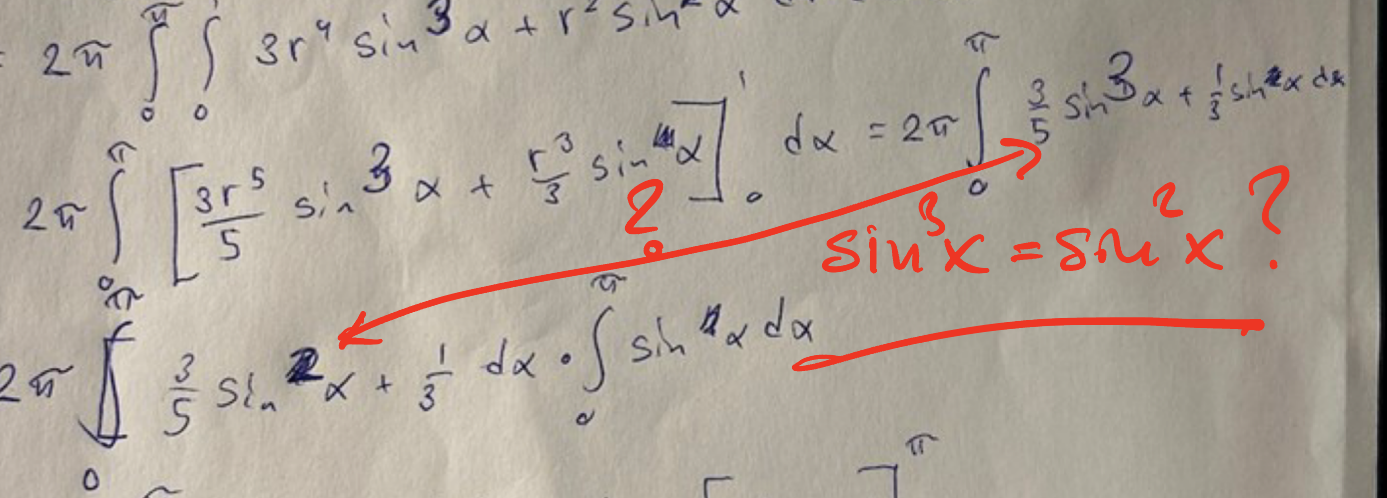 2π ∫₀^π ∫₀ 3r⁴ sin³ α + r² sin² α
2π ∫₀^π [3r⁵/5 sin³ α + r³/3 sin α]₀¹ dα = 2π ∫₀^π 3/5 sin³ α + 1/3 sin α dα
?
sin³x = sin²x ?
2π ∫₀^π 3/5 sin² α + 1/3 dα · ∫₀^π sin α dα
π